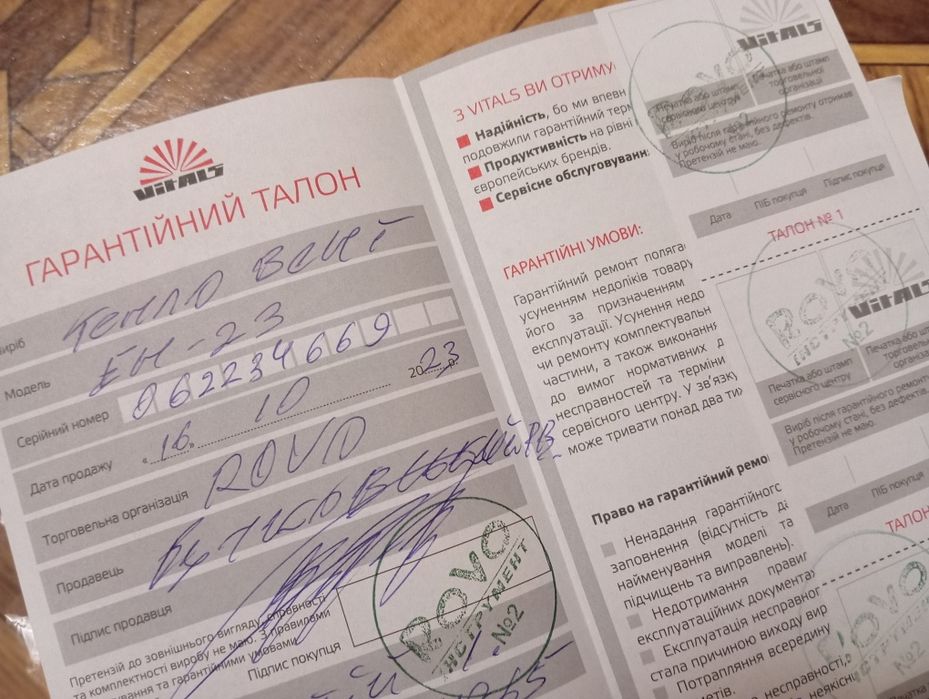 VITALS
ГАРАНТІЙНИЙ ТАЛОН
Виріб ТЕПЛО ВЕНТ
Модель EH-23
Серійний номер 062234669
Дата продажу «16» 10 2023 р.
Торговельна організація ROVO
Продавець
Підпис продавця
Претензій до зовнішнього вигляду, справності
та комплектності виробу не маю. З правилами
та гарантійними умовами
Підпис покупця
ROVO
ІНСТРУМЕНТ
№2
З VITALS ВИ ОТРИМУ
Надійність, бо ми впевн
подовжили гарантійний терм
Продуктивність на рівні
європейських брендів.
Сервісне обслуговуванн
ГАРАНТІЙНІ УМОВИ:
Гарантійний ремонт поляга
усуненням недоліків товару
його за призначенням
експлуатації. Усунення недо
чи ремонту комплектувальн
частини, а також виконанн
до вимог нормативних д
несправностей та терміни
сервісного центру. У зв'язку
може тривати понад два ти
Право на гарантійний ремо
Ненадання гарантійного
заповнення (відсутність да
найменування моделі та
підчищень та виправлень).
Недотримання прави
експлуатаційних документа
Експлуатація несправног
стала причиною виходу вир
Потрапляння всередину
VITALS
Печатка або штамп
сервісного центру
Печатка або штамп
торговельної
організації
Виріб після гарантійного ремонту отримав
у робочому стані, без дефектів.
Претензій не маю.
Дата ПІБ покупця Підпис покупця
ТАЛОН № 1
VITALS
ROVO
ІНСТРУМЕНТ
№2
Печатка або штамп
сервісного центру
Печатка або шта
торговельн
організа
Виріб після гарантійного ремонт
у робочому стані, без дефектів.
Претензій не маю.
Дата ПІБ покупця
ТАЛОН
ROVO
№2